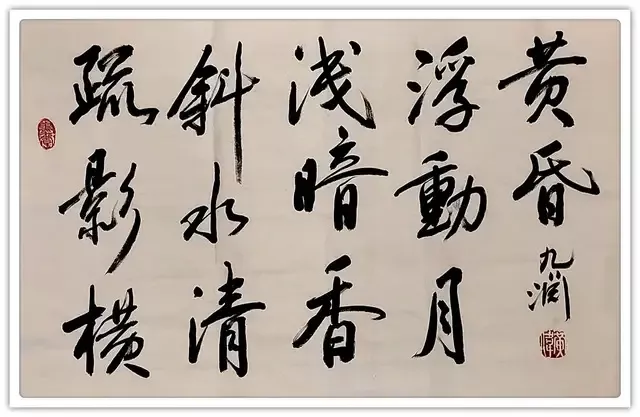 疏影横
斜水清
浅暗香
浮動月
黄昏
九